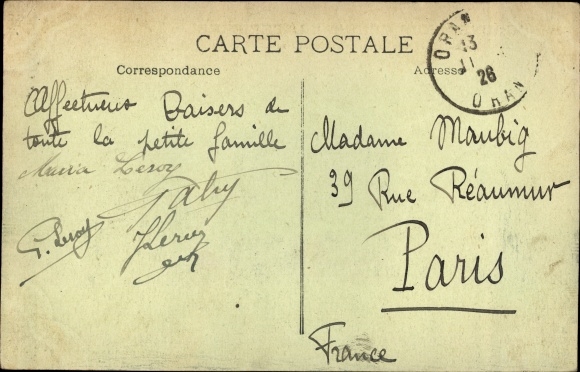 CARTE POSTALE
Correspondance
Adresse
ORAN
13
11
26
ORAN
Affectueux Baisers de
toute la petite famille
Maria Leroy
G. Leroy
JLeroy
Madame Maubig
39 Rue Réaumur
Paris
France